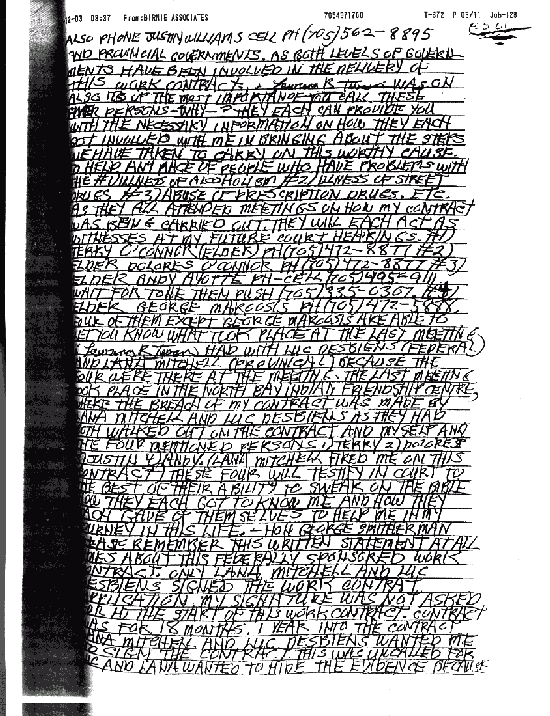 03 03:37 From:BIRNIE ASSOCIATES 7054971700 T-372 P.09/11 Job-128
ALSO PHONE JUSTIN WILLIAMS CELL PH (705) 562-8895
AND PROVINCIAL GOVERNMENTS. AS BOTH LEVELS OF GOVERN-
MENTS HAVE BEEN INVOLVED IN THE DELIVERY OF
THIS WORK CONTRACT. WAS ON
ALSO ITS OF THE MOST IMPORTANCE YOU CALL THESE
PERSONS - WHY - THEY EACH CAN PROVIDE YOU
WITH THE NECESSARY INFORMATION ON HOW THEY EACH
GOT INVOLVED WITH ME IN BRINGING ABOUT THE STEPS
WE HAVE TAKEN TO CARRY ON THIS WORTHY CAUSE
TO HELP ANY RACE OF PEOPLE WHO HAVE PROBLEMS WITH
THE #1 ILLNESS OF ALCOHOLISM #2) ILLNESS OF STREET
DRUGS #3) ABUSE OF PRESCRIPTION DRUGS. ETC.
AS THEY ALL ATTENDED MEETINGS ON HOW MY CONTRACT
WAS BEING CARRIED OUT. THEY WILL EACH ACT AS
WITNESSES AT MY FUTURE COURT HEARINGS. #1)
TERRY O'CONNOR (ELDER) PH (705) 472-8877 #2)
ELDER DOLORES O'CONNOR PH (705) 472-8877 #3)
ELDER ANDY AYOTTE PH-CELL (705) 495-9111
WAIT FOR TONE THEN PUSH (705) 835-0367
ELDER GEORGE MARCOSIS PH (705) 472-5888.
FOUR OF THEM EXCEPT GEORGE MARCOSIS ARE ABLE TO
LET YOU KNOW WHAT TOOK PLACE AT THE LAST MEETING
HAD WITH LUC DESBIENS (FEDERAL)
AND LANA MITCHELL (PROVINCIAL) BECAUSE THE
FOUR WERE THERE AT THE MEETING. THE LAST MEETING
TOOK PLACE IN THE NORTH BAY INDIAN FRIENDSHIP CENTRE,
WHERE THE BREACH OF MY CONTRACT WAS MADE BY
LANA MITCHELL AND LUC DESBIENS AS THEY HAD
BOTH WALKED OUT ON THE CONTRACT AND MYSELF AND
THE FOUR MENTIONED PERSONS. 1) TERRY 2) DOLORES
JUSTIN 4) ANDY. (LANA MITCHELL FIRED ME ON THIS
CONTRACT) THESE FOUR WILL TESTIFY IN COURT TO
THE BEST OF THEIR ABILITY TO SWEAR ON THE BIBLE
HOW THEY EACH GOT TO KNOW ME AND HOW THEY
EACH GAVE OF THEMSELVES TO HELP ME IN MY
JOURNEY IN THIS LIFE. - HON GEORGE SMITHERMAN
PLEASE REMEMBER THIS WRITTEN STATEMENT AT ALL
TIMES ABOUT THIS FEDERALLY SPONSORED WORK
CONTRACT. ONLY LANA MITCHELL AND LUC
DESBIENS SIGNED THE WORK CONTRAT
APPLICATION. MY SIGNATURE WAS NOT ASKED
FOR IN THE START OF THIS WORK CONTRACT. CONTRACT
WAS FOR 18 MONTHS. 1 YEAR INTO THE CONTRACT
LANA MITCHELL AND LUC DESBIENS WANTED ME
TO SIGN THE CONTRACT) THIS WAS UNCALLED FOR
LUC AND LANA WANTED TO HIDE THE EVIDENCE BECAUSE